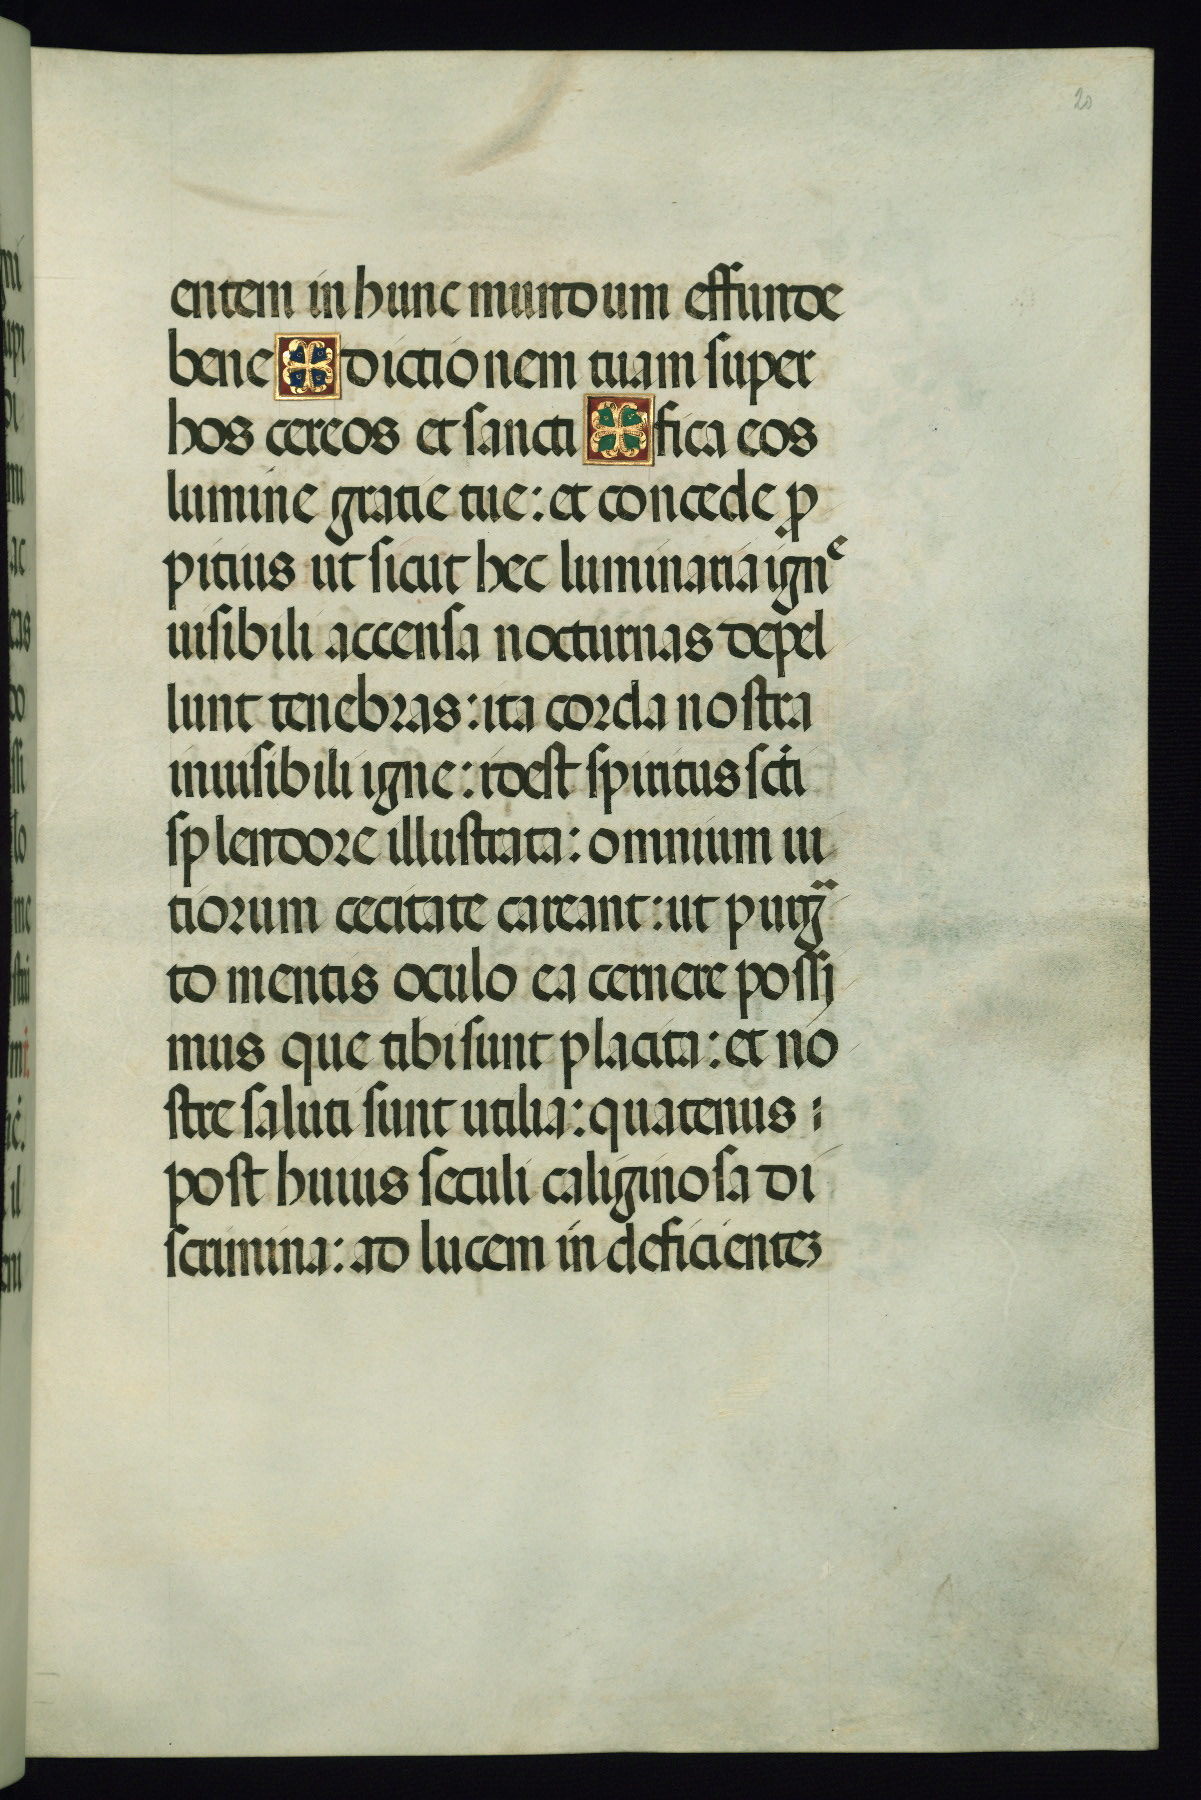 20
entem in hunc mundum effunde
bene ✠ dictionem tuam super
hos cereos et sancti ✠ fica eos
lumine gratie tue: et concede ꝓ
pitius ut sicut hec luminaria ignͤ
uisibili accensa nocturnas depel
lunt tenebras: ita corda nostra
inuisibili igne: idest spiritus scti
splendore illustrata: omnium ui
tiorum cecitate careant: ut purg̈
to mentis oculo ea cernere possi
mus que tibi sunt placita: et no
stre saluti sunt utilia: quatenus :
post huius seculi caliginosa di
scrimina: ad lucem indeficientez